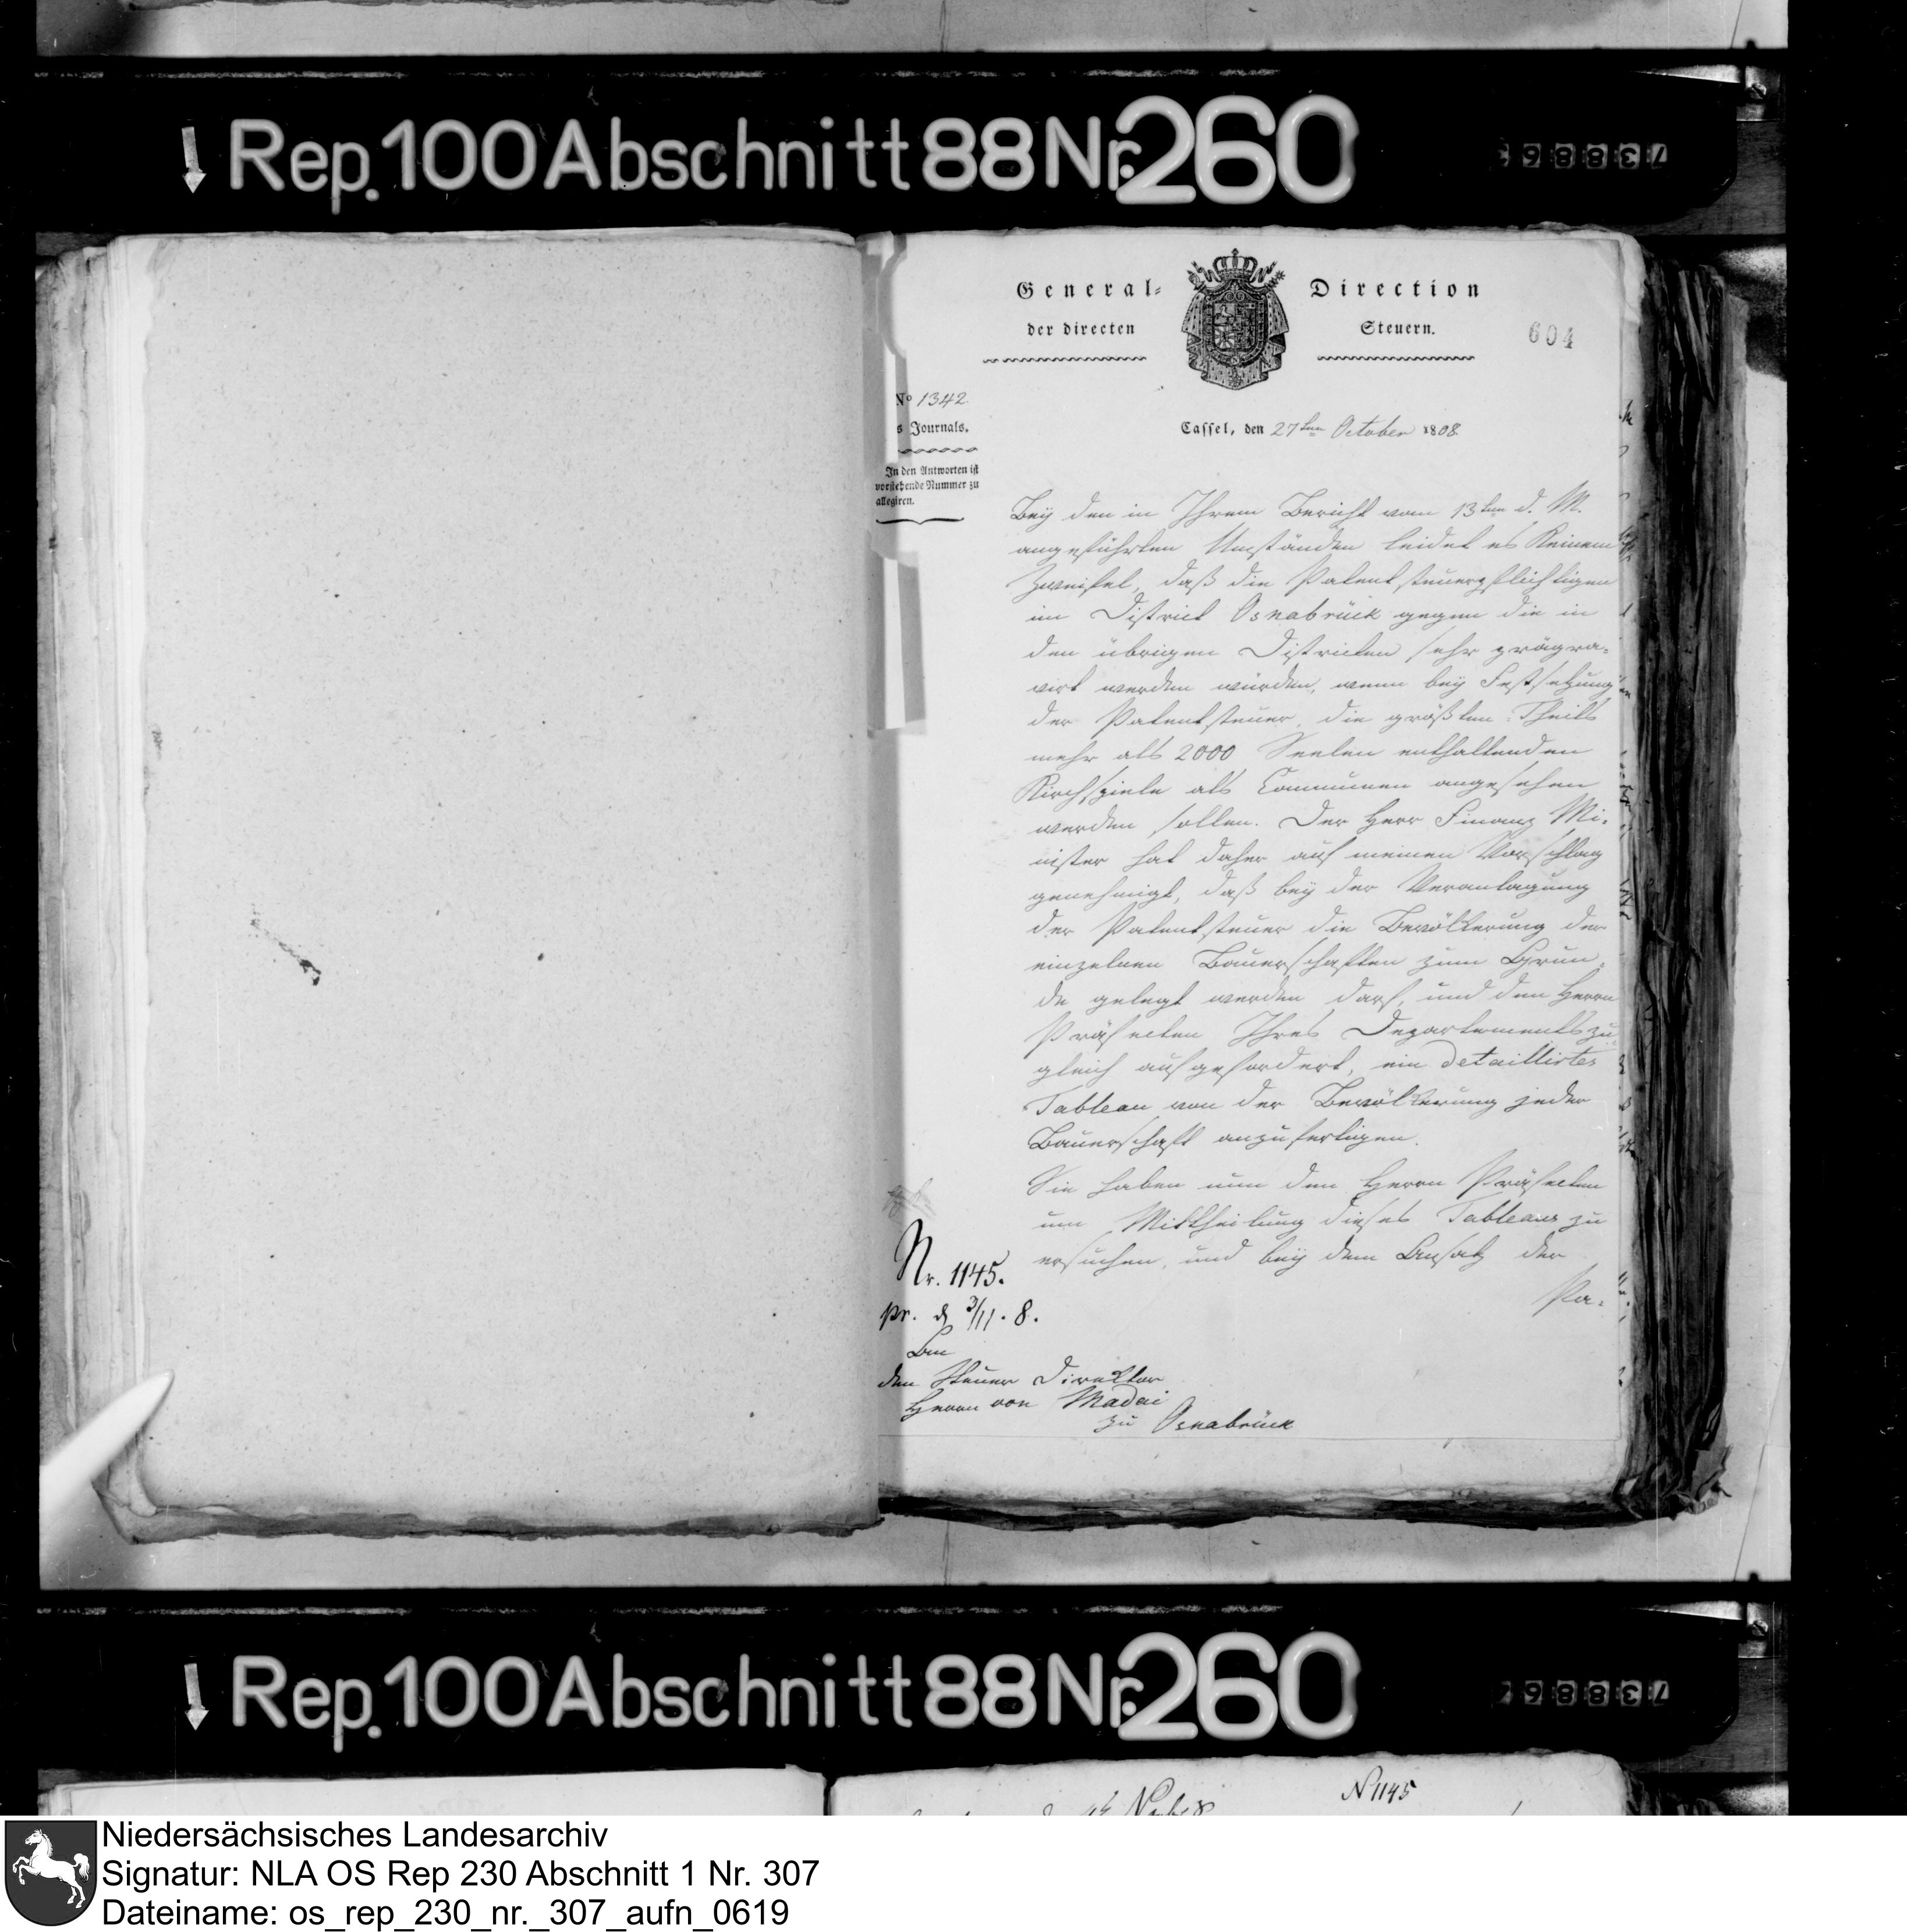 Rep. 100 Abschnitt 88 Nr. 260
General- Direction
der directen Steuern.
604
No 1342.
s Journals.
Cassel, den 27ten October 1808.
In den Antworten ist
vorstehende Nummer zu
allegiren.
Bey den in Ihrem Bericht vom 13ten d. M.
angeführten Umständen leidet es keinen
Zweifel, daß die Patentsteuerpflichtigen
im District Osnabrück gegen die in
den übrigen Districten sehr prägra-
virt werden würden, wenn bey Festsetzung
der Patentsteuer, die größten Theils
mehr als 2000 Seelen enthaltenden
Kirchspiele als Communen angesehen
werden sollen. Der Herr Finanz Mi-
nister hat daher auf meinen Vorschlag
genehmigt, daß bey der Veranlagung
der Patentsteuer die Bevölkerung der
einzelnen Bauerschaften zum Grun-
de gelegt werden darf, und den Herrn
Präfecten Ihres Departements zu-
gleich aufgefordert, ein detaillirtes
Tableau von der Bevölkerung jeder
Bauerschaft anzufertigen.
Sie haben nun den Herrn Präfecten
um Mittheilung dieses Tableaus zu
ersuchen, und bey dem Ansatz der
Pa-
Nr. 1145.
pr. d 3/11. 8.
An
den Steuer Direktor
Herrn von Madai
zu Osnabrück
Rep. 100 Abschnitt 88 Nr. 260
N 1145
Niedersächsisches Landesarchiv
Signatur: NLA OS Rep 230 Abschnitt 1 Nr. 307
Dateiname: os_rep_230_nr._307_aufn_0619